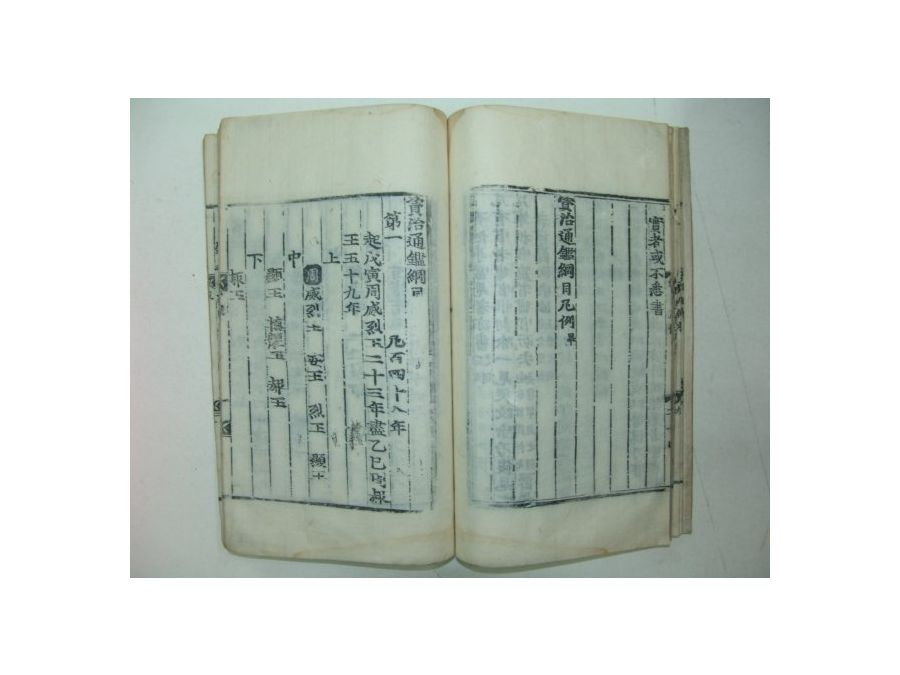 實者或不悉書
資治通鑑綱目凡例畢
資治通鑑綱目
第一 凡百四十八年
起戊寅周威烈王二十三年盡乙巳周赧
王五十九年
上
周威烈王 安王 烈王 顯王
中
顯王 慎靚王 赧王
下
赧王